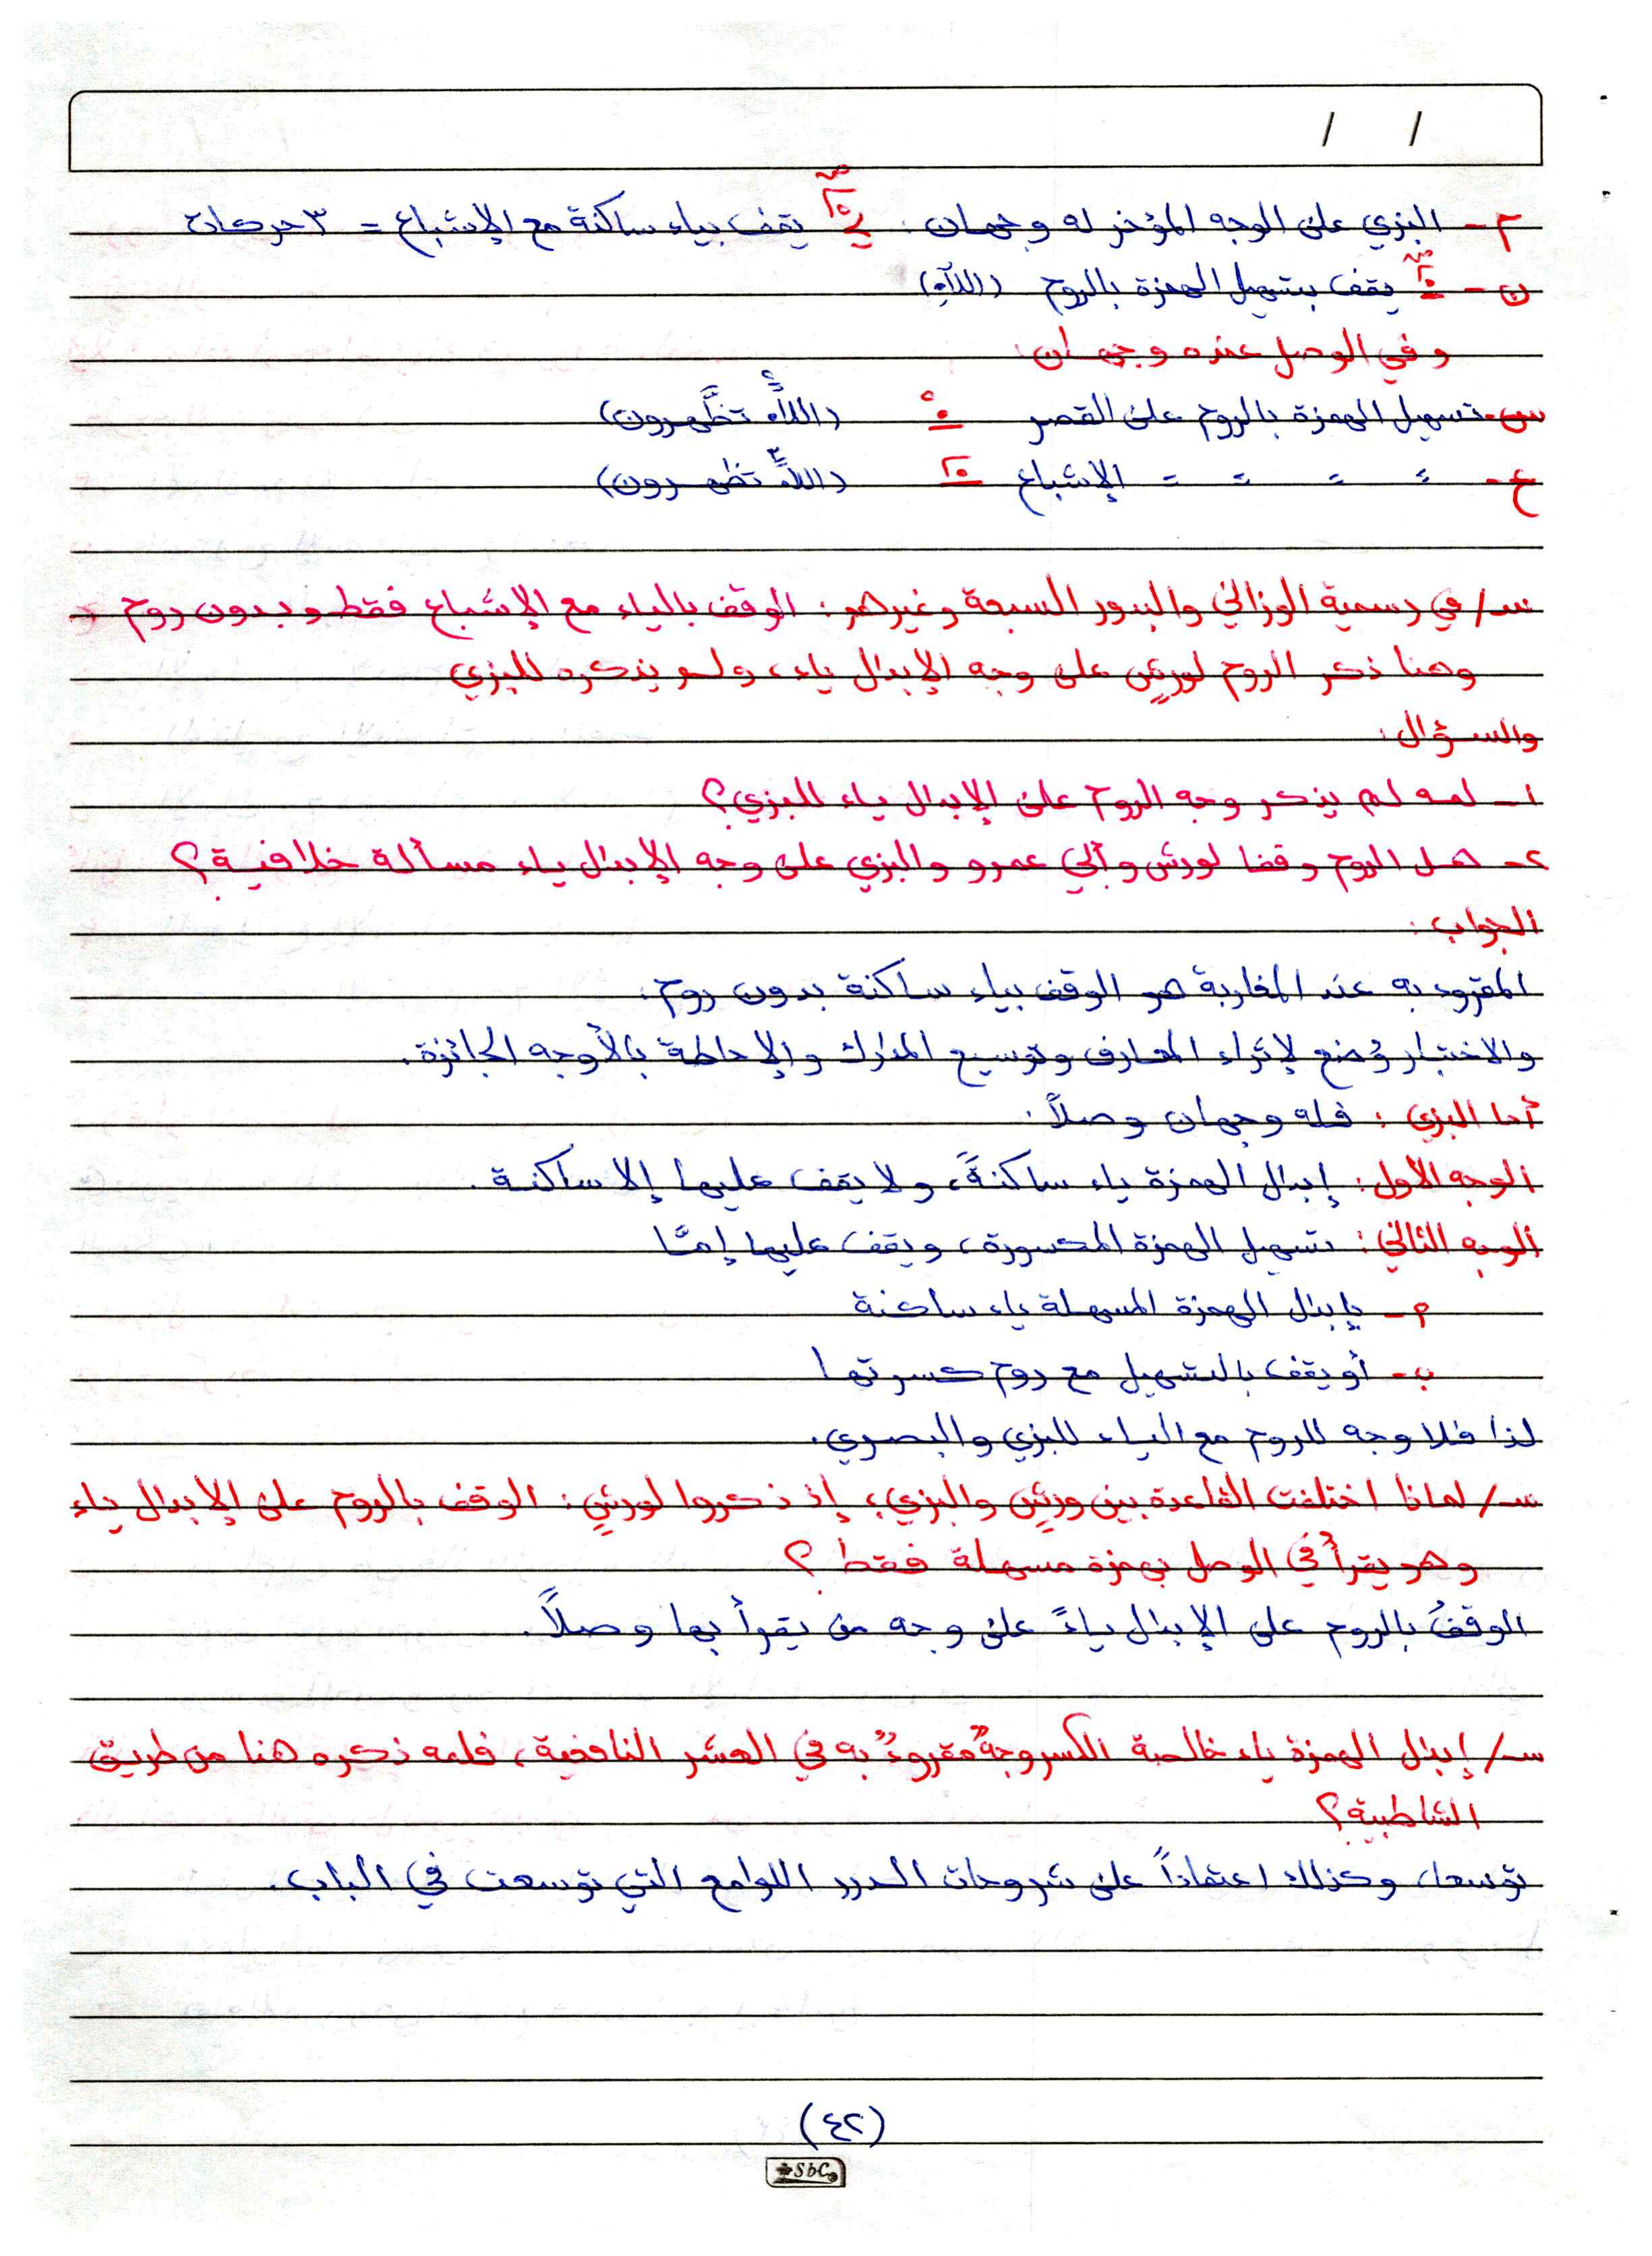 / /
م - البزي على الوجه المؤخر له وجهان: يقف بياء ساكنة مع الإشباع = ٣ حركات
ن - يقف بتسهيل الهمزة بالروم (اللآءِ)
وفي الوصل عنده وجهان:
س - تسهيل الهمزة بالروم على القصر (اللاء تظَّهرون)
ع - = = = = الإشباع (اللاء تظهرون)
س/ في رسمية الوزاني والبدور السبعة وغيرهم: الوقف بالياء مع الإشباع فقط وبدون روم
وهنا ذكر الروم لورشٍ على وجه الإبدال ياء، ولم يذكره للبزي
والسؤال:
١- لمه لم يذكر وجه الروم على الإبدال ياء للبزي؟
٢- هل الروم وقفا لورش وأبي عمرو والبزي على وجه الإبدال ياء مسألة خلافية؟
الجواب:
المقروء به عند المغاربة هو الوقف بياء ساكنة بدون روم.
والاختبار وُضع لإثراء المعارف وتوسيع المدارك والإحاطة بالأوجه الجائزة.
أما البزي: فله وجهان وصلاً:
الوجه الأول: إبدال الهمزة ياء ساكنةً، ولا يقف عليها إلا ساكنة.
الوجه الثاني: تسهيل الهمزة المكسورة، ويقف عليها إمَّا
م - بإبدال الهمزة المسهلة ياء ساكنة
ب - أو يقف بالتسهيل مع روم كسرتها
لذا فلا وجه للروم مع الياء للبزي والبصري.
س/ لماذا اختلفت القاعدة بين ورشٍ والبزي؛ إذ ذكروا لورشٍ: الوقف بالروم على الإبدال ياء
وهو يقرأ في الوصل بهمزة مسهلة فقط؟
الوقفُ بالروم على الإبدال ياءً على وجه من يقرأ بها وصلاً.
س/ إبدال الهمزة ياء خالصة الكسر وجهٌ مقروءٌ به في العشر النافعية، فلمه ذكره هنا من طريق
الشاطبية؟
توسعا، وكذلك اعتماداً على شروحات الدرر اللوامع التي توسعت في الباب.
(٤٢)
SbC